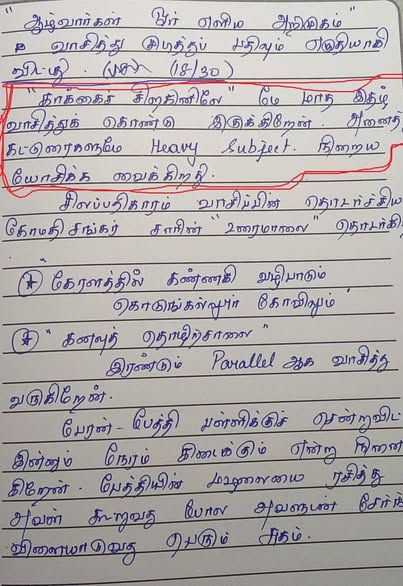 "ஆழ்வார்கள் ஓர் எளிய அறிமுகம்"
வாசித்து முடித்துப் பதிவும் எழுதியாகி
விட்டது. (18/30)
"காக்கைச் சிறகினிலே" மே மாத இதழ்
வாசித்துக் கொண்டு இருக்கிறேன். அனைத்
கட்டுரைகளுமே Heavy Subject. நிறைய
யோசிக்க வைக்கிறது.
சிலப்பதிகாரம் வாசிப்பின் தொடர்ச்சிய
கோமதி சங்கர் சாரின் "உரைமாலை" தொடர்கி
* "கேரளத்தில் கண்ணகி வழிபாடும்
கொடுங்கல்லூர் கோவிலும்"
* "கனவுத் தொழிற்சாலை"
இரண்டும் Parallel ஆக வாசித்து
வருகிறேன்.
பேரன் - பேத்தி பள்ளிக்குச் சென்றுவிட்
இன்னும் நேரம் கிடைக்கும் என்று நினை
கிறேன். பேத்தியின் மழலையை ரசித்து
அவள் கூறுவது போல அவளுடன் சேர்ந்
விளையாடுவது பெரும் சுகம்.